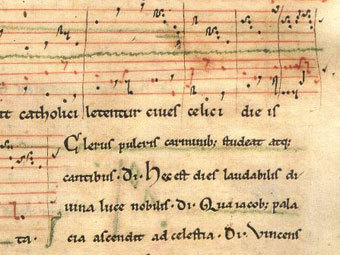 tt catholici letentur ciues celici die is
Clerus pulcris carminib; studeat atq;
cantibus · Di · Hec est dies laudabilis di
uina luce nobilis · di · Qua iacob; pala
ta · cia ascendit ad celestia · Di · Vincens